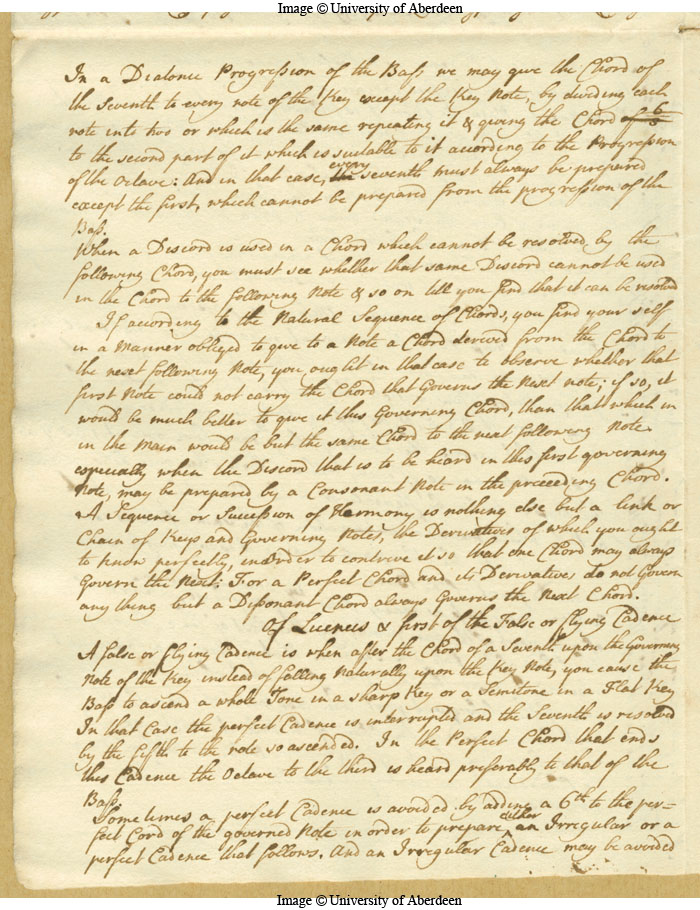 Image © University of Aberdeen
In a Diatonic Progression of the Bass, we may give the Chord of
the Seventh to every note of the Key except the Key Note, by dividing each
note into two or which is the same repeating it & giving the Chord
to the second part of it which is suitable to it according to the Progression
of the Octave: And in that case, every seventh must always be prepared
except the first, which cannot be prepared from the progression of the
Bass.
When a Discord is used in a Chord which cannot be resolved by the
following Chord, you must see whether that same Discord cannot be used
in the Chord to the following Note & so on till you find that it can be resolved
If according to the Natural Sequence of Chords, you find your self
in a Manner obliged to give to a Note a Chord derived from the Chord to
the next following Note, you ought in that case to observe whether that
first Note could not carry the Chord that Governs the Next note; if so, it
would be much better to give it this Governing Chord, than that which in
in the Main would be but the same Chord to the next following Note
especially when the Discord that is to be heard in this first governing
Note, may be prepared by a Consonant Note in the preceeding Chord.
A Sequence or Succession of Harmony is nothing else but a link or
Chain of Keys and Governing Notes, the Derivatives of which you ought
to know perfectly, in order to contrive it so that one Chord may always
Govern the Next: For a Perfect Chord and its Derivatives do not Govern
any thing but a Dissonant Chord always Governs the Next Chord.
Of Licences & first of the False or flying Cadence
A false or flying Cadence is when after the Chord of a Seventh upon the Governing
Note of the Key instead of falling Naturally upon the Key Note, you cause the
Bass to ascend a whole Tone in a sharp Key or a Semitone in a Flat Key
In that Case the perfect Cadence is interrupted and the Seventh is resolved
by the fifth to the note so ascended. In the Perfect Chord that ends
this Cadence the Octave to the third is heard preferably to that of the
Bass.
Sometimes a perfect Cadence is avoided by adding a 6th to the per-
fect Cord of the governed Note in order to prepare either an Irregular or a
perfect Cadence that follows. And an Irregular Cadence may be avoided
Image © University of Aberdeen